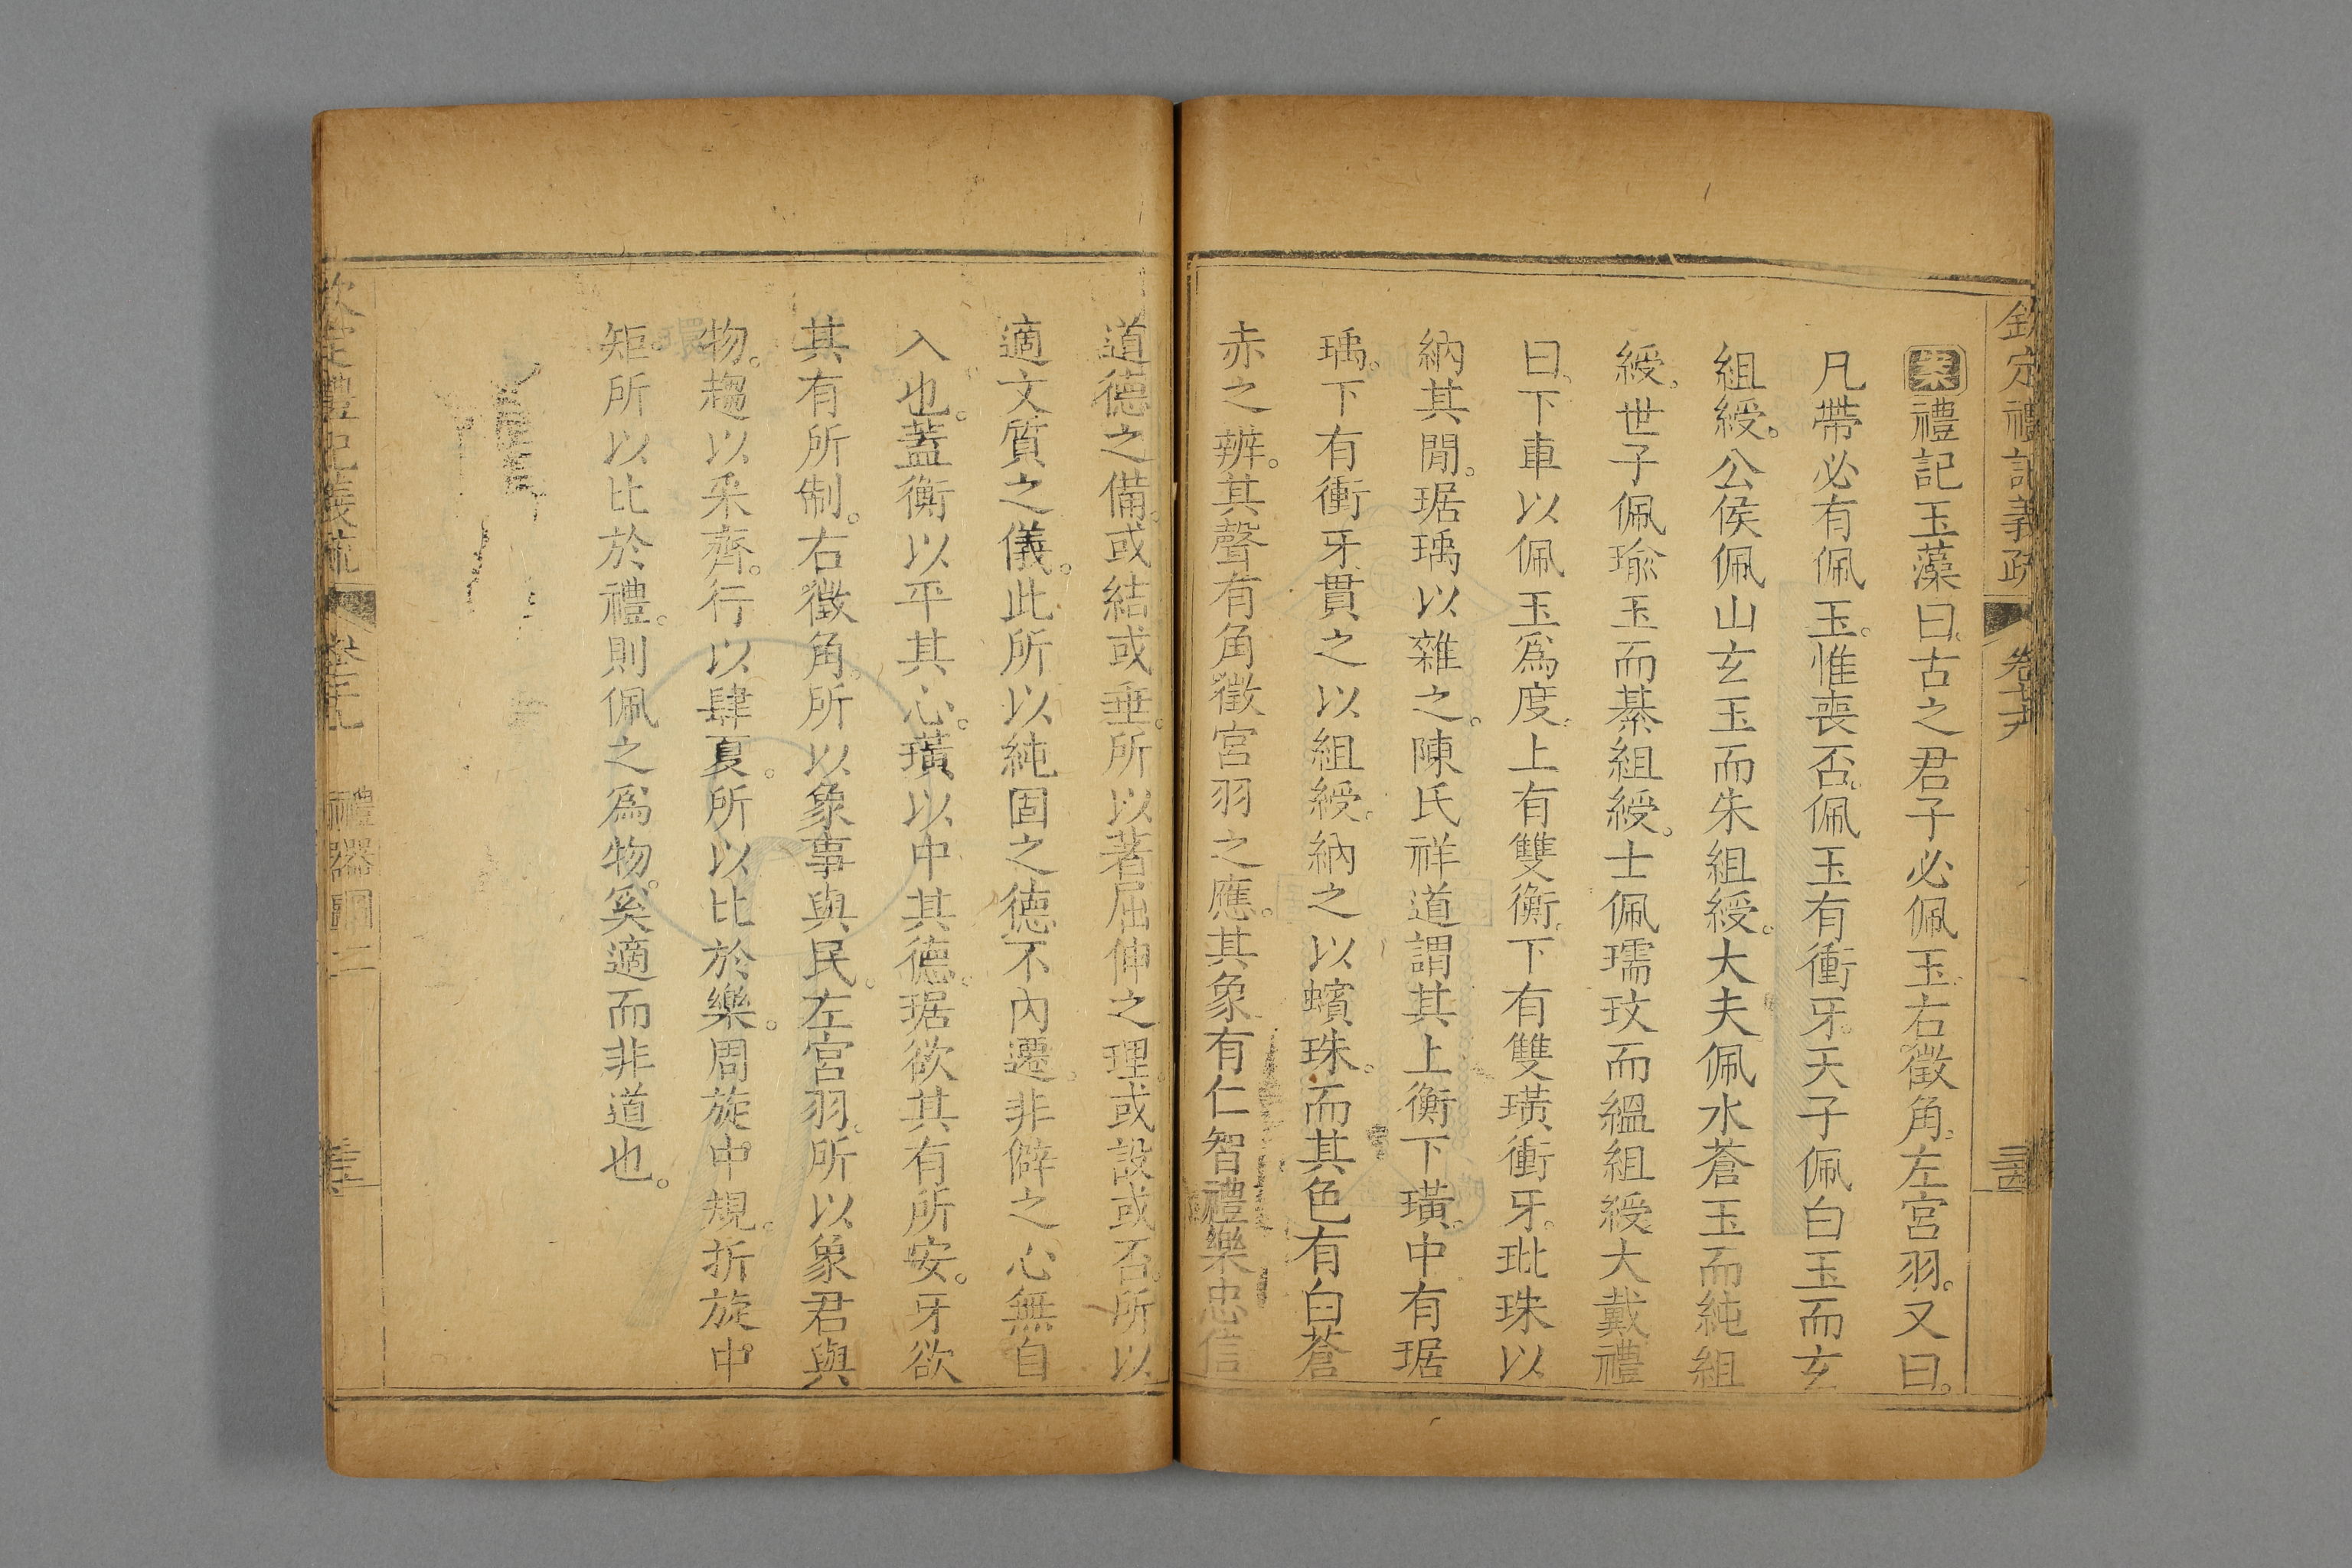 欽定禮記義疏
案禮記玉藻曰。古之君子必佩玉。右徵角。左宮羽。又曰。
凡帶必有佩玉。惟喪否。佩玉有衝牙。天子佩白玉而玄
組綬。公侯佩山玄玉而朱組綬。大夫佩水蒼玉而純組
綬。世子佩瑜玉而綦組綬。士佩瓀玟而縕組綬大戴禮
曰。下車以佩玉爲度。上有雙衡。下有雙璜衝牙。玭珠以
納其閒。琚瑀以雜之。陳氏祥道謂其上衡下璜。中有琚
瑀。下有衝牙貫之以組綬。納之以蠙珠。而其色有白蒼
赤之辨。其聲有角徵宮羽之應。其象有仁智禮樂忠信
道德之備。或結或垂。所以著屈伸之理。或設或否。所以
適文質之儀。此所以純固之德不內遷。非僻之心無自
入也。蓋衡以平其心。璜以中其德。琚欲其有所安。牙欲
其有所制。右徵角。所以象事與民。左宮羽。所以象君與
物。趨以采齊。行以肆夏。所以比於樂。周旋中規。折旋中
矩。所以比於禮。則佩之爲物。奚適而非道也。
欽定禮記義疏 禮器圖二